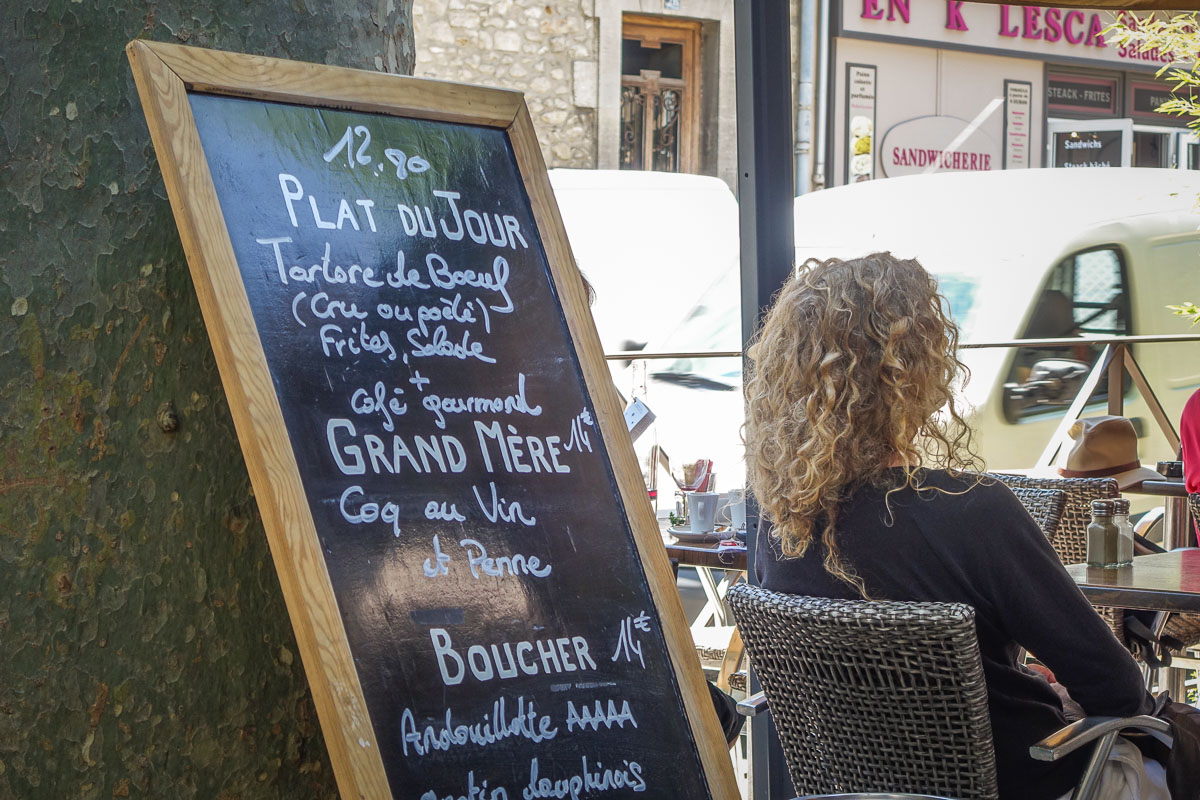 12.90
PLAT DU JOUR
Tartare de Boeuf
(Cru ou poêlé)
Frites, Salade
+
Café gourmand
GRAND MÈRE 14€
Coq au Vin
et Penne
BOUCHER 14€
Andouillette AAAAA
gratin dauphinois
EN K LESCA
Salades
STEACK - FRITES
SANDWICHERIE
Sandwichs
Steack haché